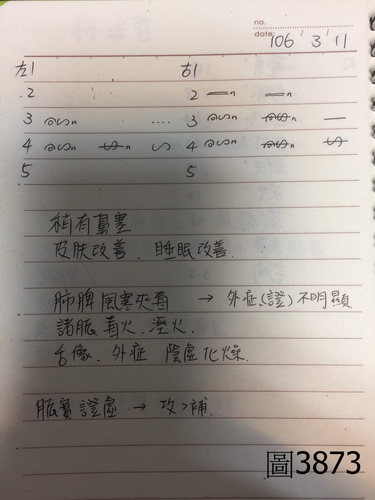 no.
date: 106' 3' 11
左1 右1
.2 2 n
3 n .... 3 n
4 n n 4 n
5 5
稍有鼻塞
皮膚改善. 睡眠改善.
肺脾風寒夾毒 → 外症(證)不明顯
諸脈毒火.溼火.
舌像.外症 陰虛化燥.
脈實證虛 → 攻>補.
圖3873